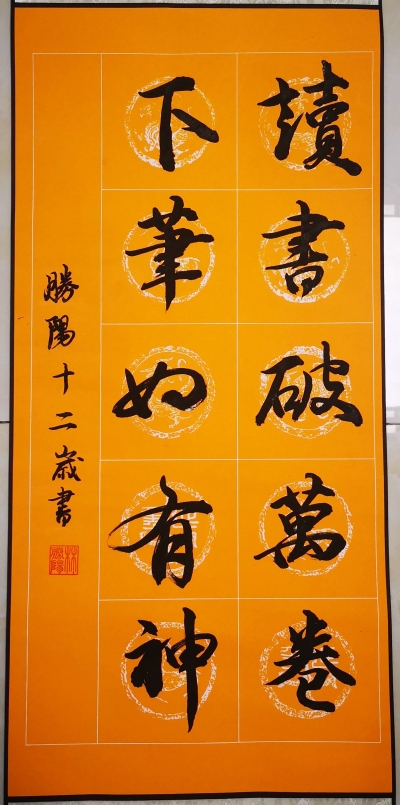 讀書破萬卷
下筆如有神
勝陽十二歲書